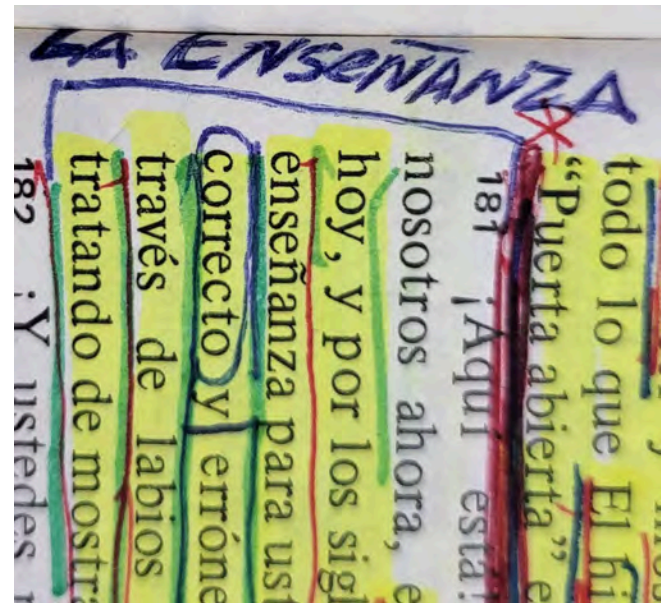 LA ENSEÑANZA
todo lo que El hi
“Puerta abierta” e
181 ¡Aquí está!
nosotros ahora, e
hoy, y por los sigl
enseñanza para ust
correcto y erróne
través de labios
tratando de mostra
182 ¡Y ustedes